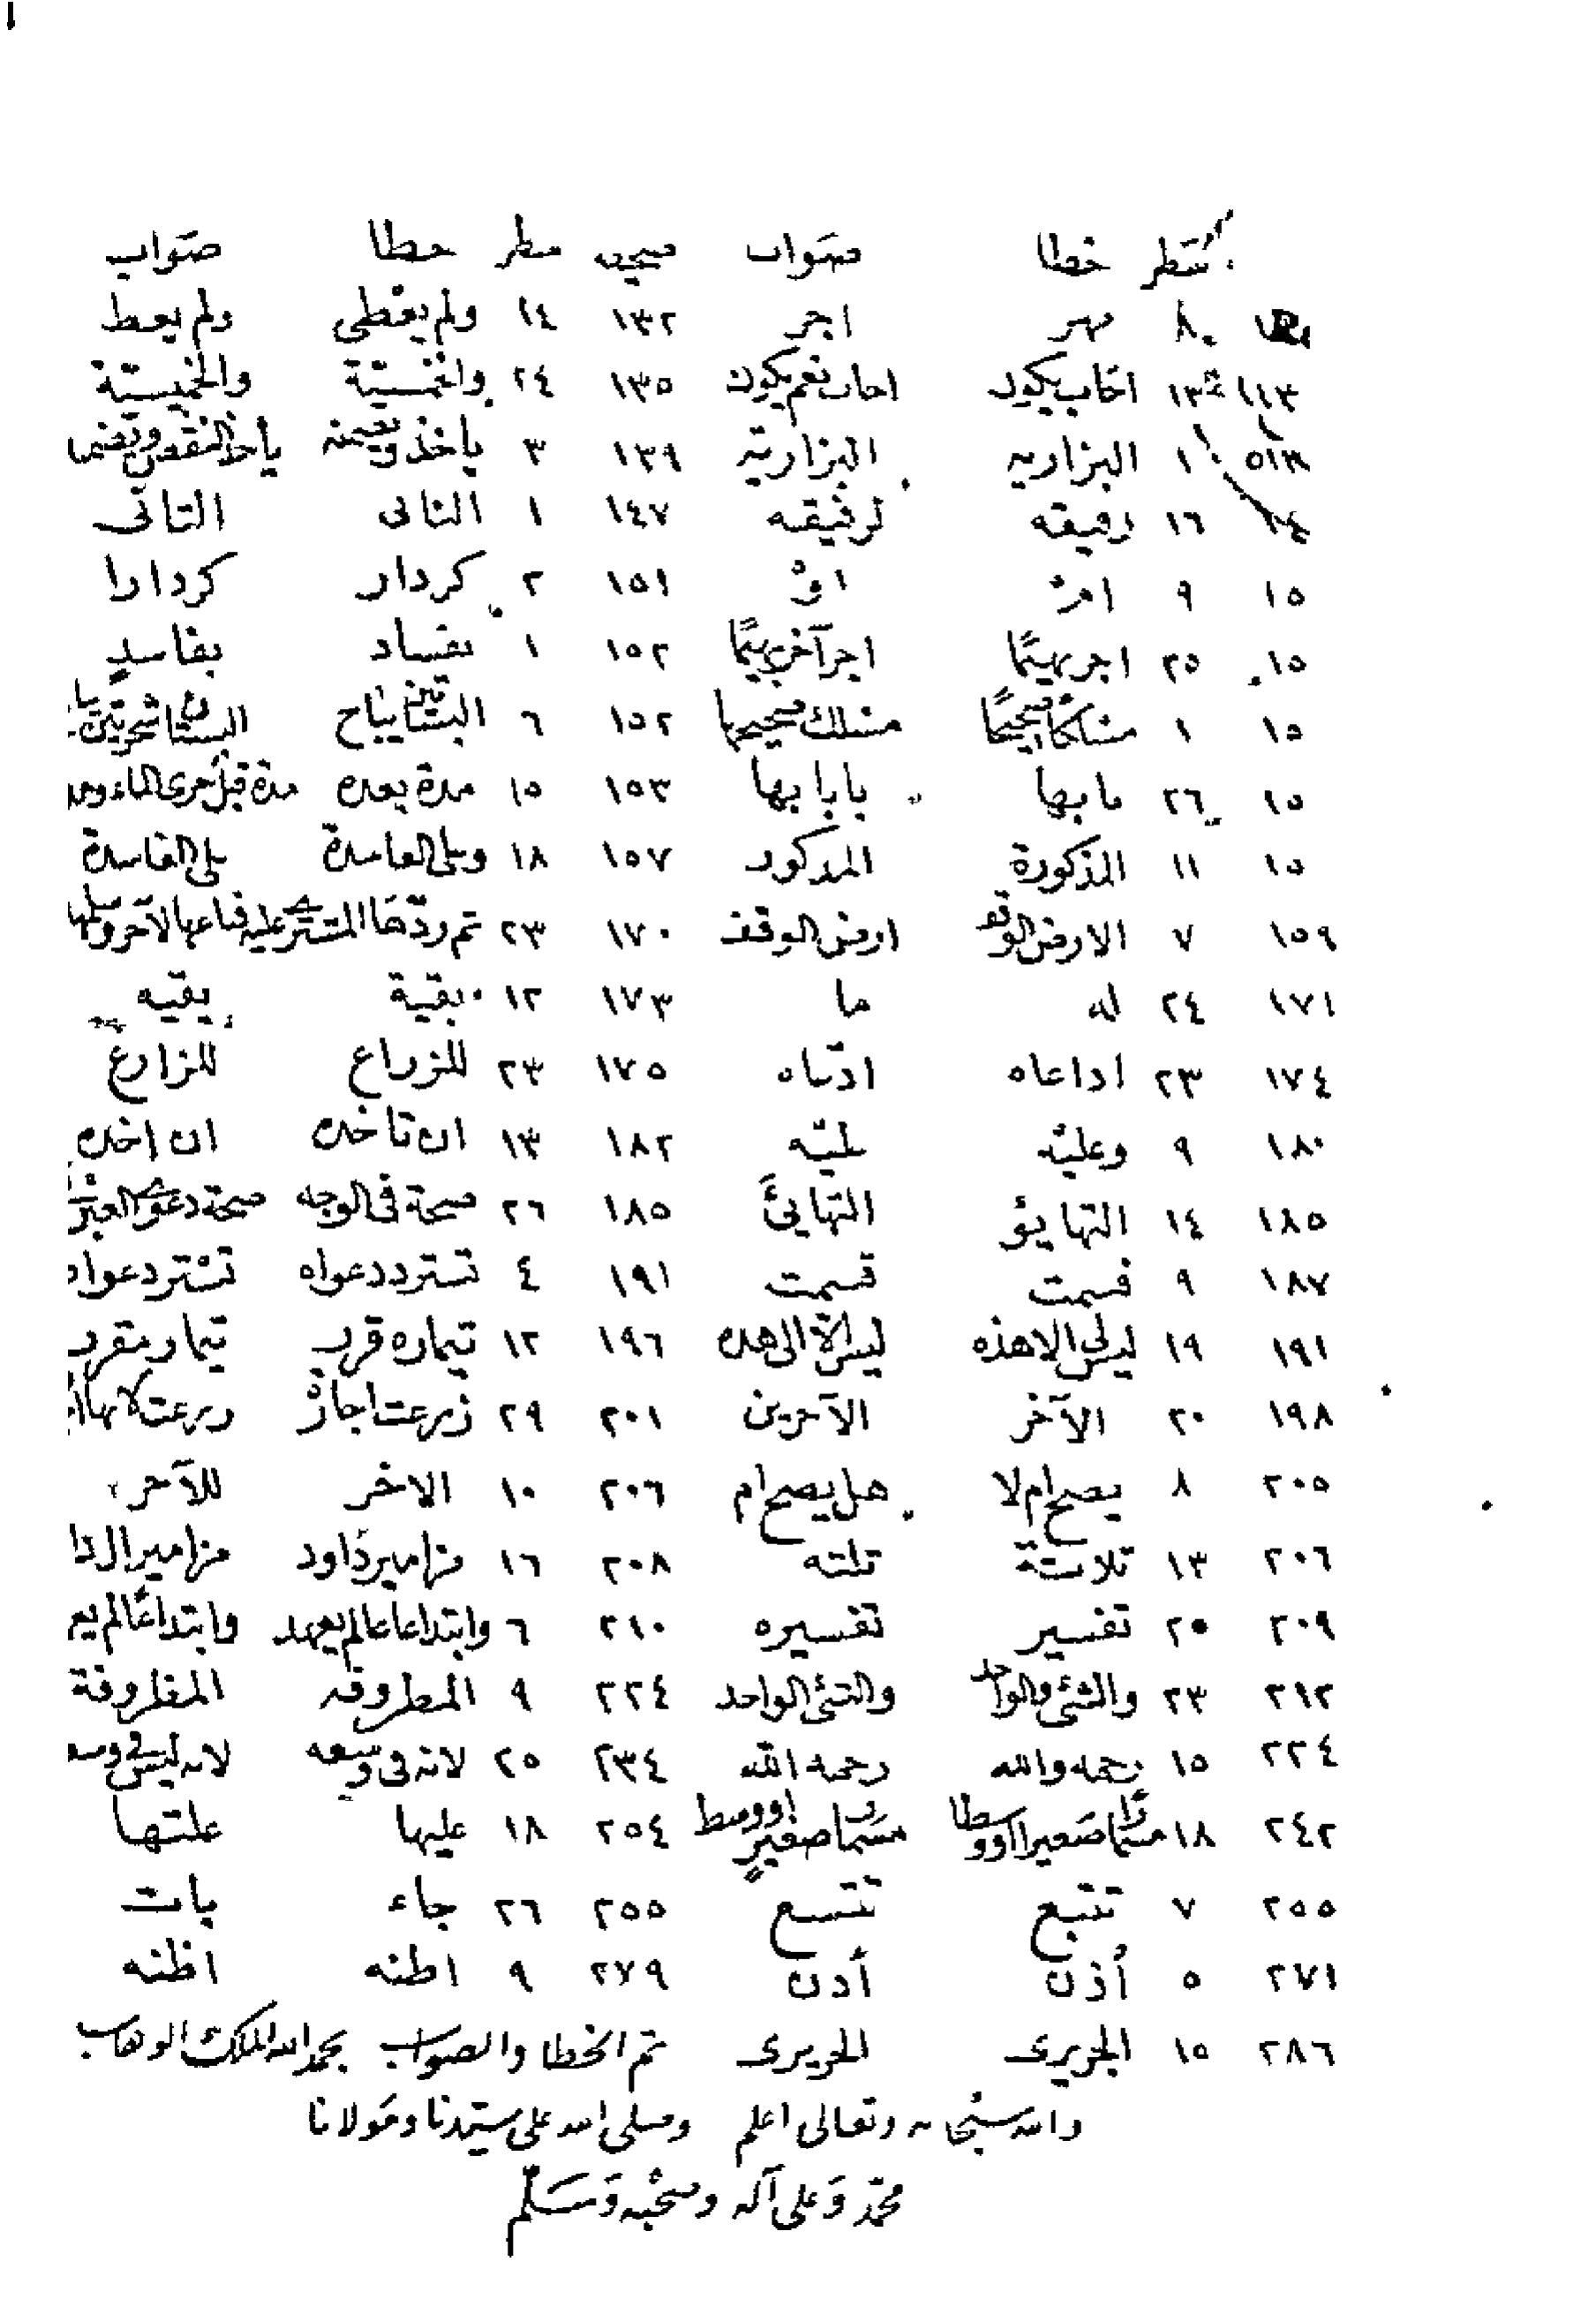 سَطر خطا صَواب صحيفه سطر خطا صَواب
٨ مهر اجر ١٣٢ ١٤ ولم يعْطى ولم يعط
١١٣ ١٣ اجاب يكون اجاب نعم يكون ١٣٥ ٢٤ والخمسيّة والخميسيّة
١ البزاريه البزازيّه ١٣٩ ٣ ياخذ
١٦ رفيقه لرفيقه ١٤٧ ١ الثانى الثانى
١٥ ٩ او ١٥١ ٢ كردار كردارا
١٥ ٢٥ اجر يهيئا اجرآخر يهيئا ١٥٢ ١ بفساد بفاسدٍ
١٥ ١ ١٥٢ ٦
١٥ ٢٦ مابها بابابها ١٥٣ ١٥ مدة بعده مدة قبل
١٥ ١١ المذكورة المذكور ١٥٧ ١٨ وعلى الفاسدة على الفاسدة
١٥٩ ٧ الارض الوقف ارض الوقف ١٧٠ ٢٣ ثم ردّهَا المشترى عليه فباعها لآخر وسلمها
١٧١ ٢٤ له ما ١٧٣ ١٢ بقية بقيه
١٧٤ ٢٣ اداعاه ادّعاه ١٧٥ ٢٣ للزراع للزارع
١٨٠ ٩ وعليْه عليْه ١٨٢ ١٣ ان تاخذه ان اخذه
١٨٥ ١٤ التهايؤ التهايئَ ١٨٥ ٢٦ صحة فى الوجه صحة دعوى
١٨٧ ٩ فسمت قسمت ١٩١ ٤ تسترد دعواه تسْتر دعواه
١٩١ ١٩ ليس لى الاهذه ليس الا الى هذه ١٩٦ ١٢ تيماره قرب تيمار بقرب
١٩٨ ٢٠ الآخر الآخرين ٢٠١ ٢٩ زرعت اجازة
٢٠٥ ٨ يصح ام لا هل يصح ام ٢٠٦ ١٠ الاخر للآخر
٢٠٦ ١٣ ثلاثة ثلثه ٢٠٨ ١٦ مزامير دَاود مزامير ال دا
٢٠٩ ٢٥ تفسير تفسيره ٢١٠ ٦ وابتداعا عالم يعهد وابتداعًا لم يع
٢١٢ ٢٣ والشئ والواحد والشئ الواحد ٢٢٤ ٩ المطروفه المظروفة
٢٢٤ ١٥ رحمه والله رحمه الله ٢٣٤ ٢٥ لانه فى وسعه لانه ليس فى وسع
٢٤٢ ١٨ صغيرا اووسطا صغيرٍ اووسط ٢٥٤ ١٨ عليها علتها
٢٥٥ ٧ تتبع تتسع ٢٥٥ ٢٦ جاء بات
٢٧١ ٥ أُذن أدن ٢٧٩ ٩ اطنه اظنه
٢٨٦ ١٥ الجريرى الحريرى تم الخطا والصواب بحمد الله الملك الوهاب
والله سبْحانه وتعالى اعلم وصلى الله على سيّدنا ومَولانا
محمّد وَعلى آله وصحْبه وَسَلّم